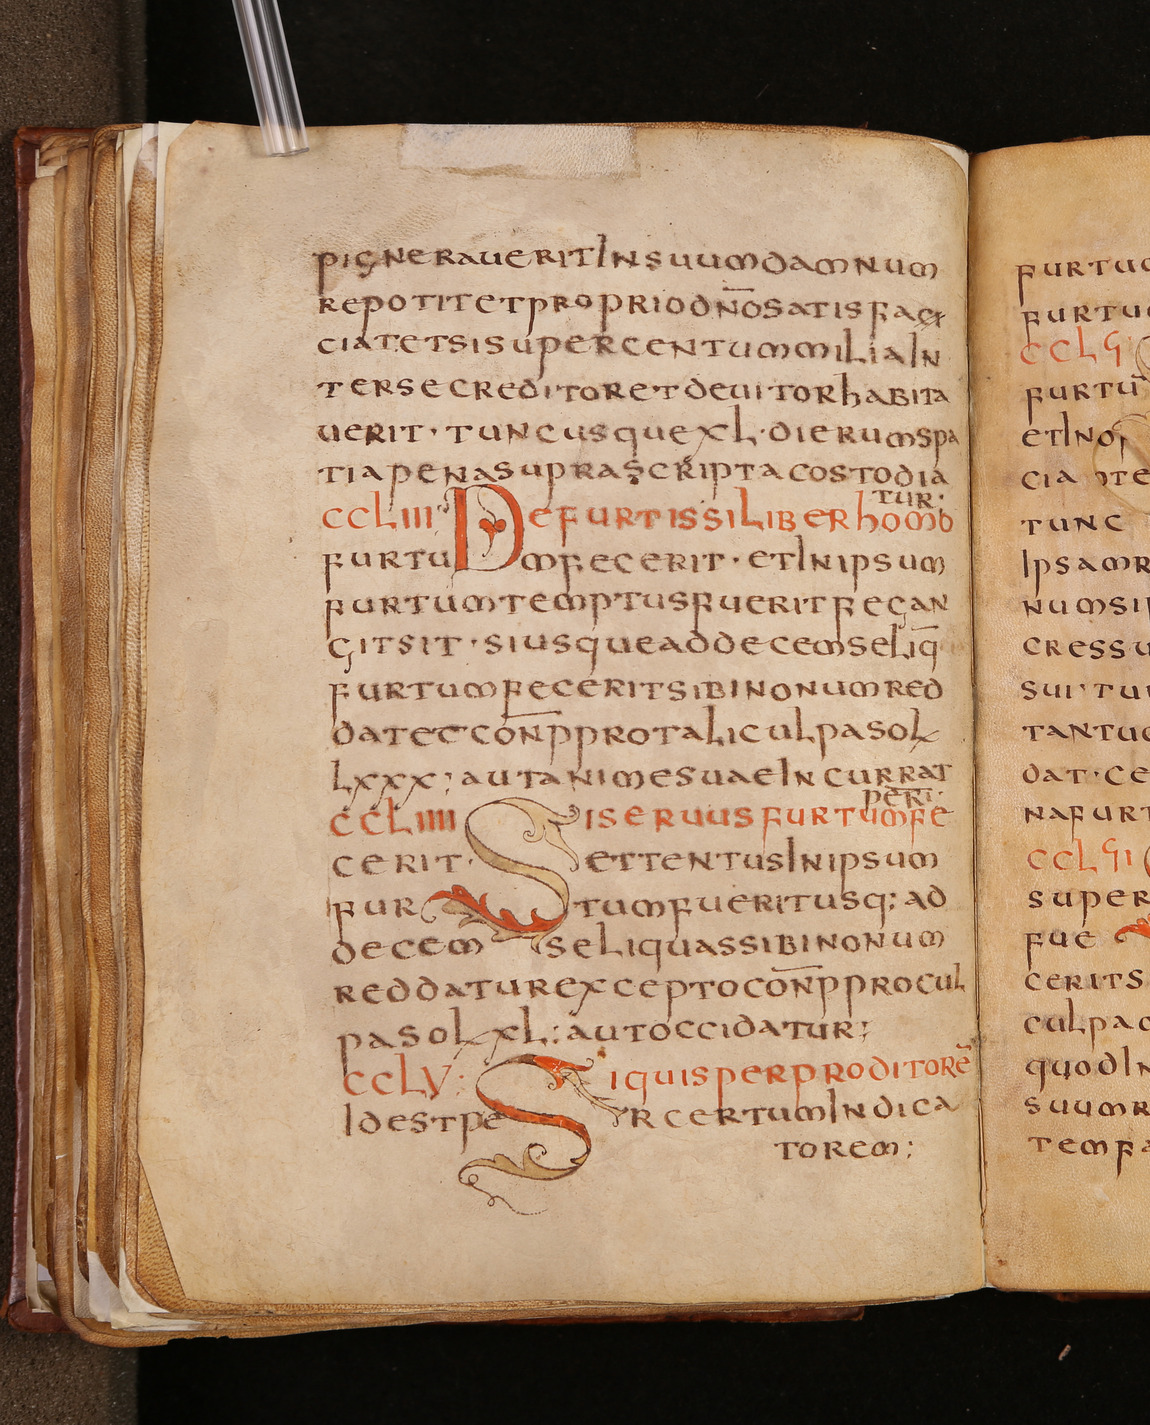 pignerauerit In suum damnum
repotit et proprio dn̄o satis fac
ciat et si super centum milia In
ter se creditor et deuitor habita
uerit · tunc usque XL · dierum spa
tia pena suprascripta costodia
tur ·
CCLIII De furtis si liber homo
furtum fecerit · et In ipsum
furtum temptus fuerit fegan
git sit · si usque ad decem seliq̄
furtum fecerit sibi nonum red
dat et con̄p pro tali culpa sol
LXXX; aut animesuae Incurrat
peri ·
CCLIIII Si seruus furtum fe
cerit · ettentus In ipsum
furtum fuerit usq; ad
decem seliquas sibi nonum
reddatur excepto con̄p procul
pa sol XL: aut occidatur;
CCLV: Si quis per proditorē
Id est per certum Indica
torem;
furtu
furtu
CCLϚ
furtū
et In
cia
tunc
Ipsam
num si
cressu
sui
tantu
dat · ce
na furt
CCLϚI
super
fue
cerit s
culpa
quod In
suum
tem